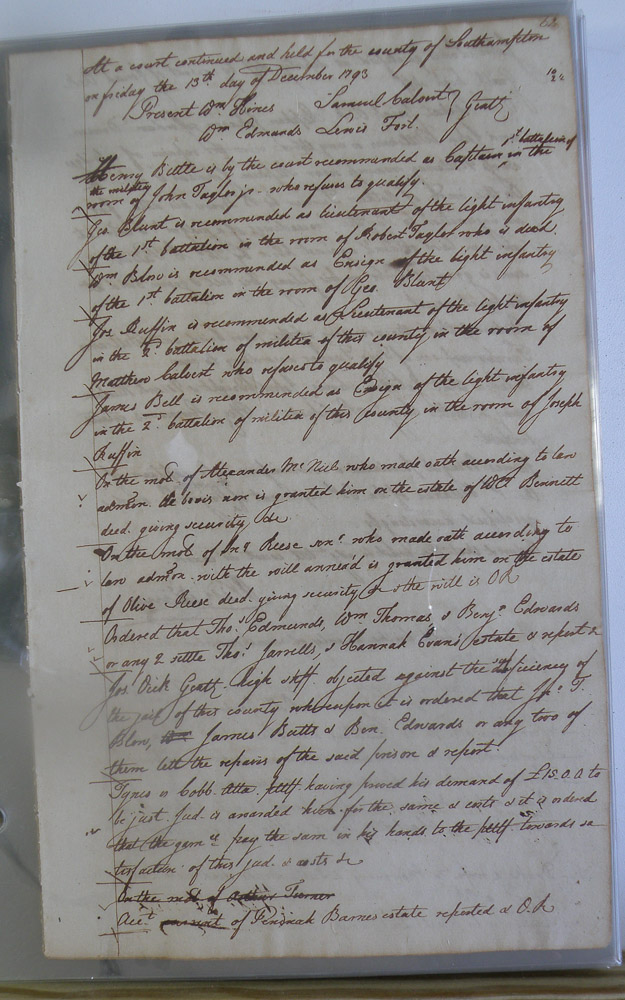 At a court continued and held for the county of Southampton
on friday the 13th day of December 1793
Present Wm Hines Samuel Calvert } Gentn
Wm Edmunds Lewis Fort
Henry Bittle is by the court recommended as Captain 1st battalion of in the
the militia room of John Taylor jr. who refuses to qualify.
Geo. Blunt is recommended as lieutenant of the light infantry
of the 1st battalion in the room of Robert Taylor who is dead
Wm Blow is recommended as Ensign of the light infantry
of the 1st battalion in the room of Geo. Blunt
Jos Ruffin is recommended as Lieutenant of the light infantry
in the 2d battalion of militia of this county in the room of
Matthew Calvert who refuses to qualify
James Bell is recommended as Ensign of the light infantry
in the 2d battalion of militia of this County in the room of Joseph
Ruffin
On the mot of Alexander McNiel who made oath according to law
admon de bonis non is granted him on the estate of Bennett
deed. giving security &c
On the mot of Jno Reese senr who made oath according to
law admon with the will annex'd is granted him on the estate
of Olive Reese deed. giving security & the will is O R
Ordered that Tho. Edmunds, Wm Thomas & Benjn Edwards
or any 2 settle Thos Jarrells, & Hannah Evans estate & report &
Jos Dick Gentn high shff objected against the deficiency of
the jail of this county whereupon it is ordered that Jno T.
Blow, James Butts & Ben. Edwards or any two of
them lett the repairs of the said prison & report.
Tynes v Cobb. Atta pltff having proved his demand of £15.0.0 to
be just. Jud. is awarded him for the same & costs & it is ordered
that the garne pay the sum in his hands to the pltff towards sa
tisfaction of this Jud. & costs &c
On the mot of Arthur Turner
Acct of Barnes estate reported & O.R